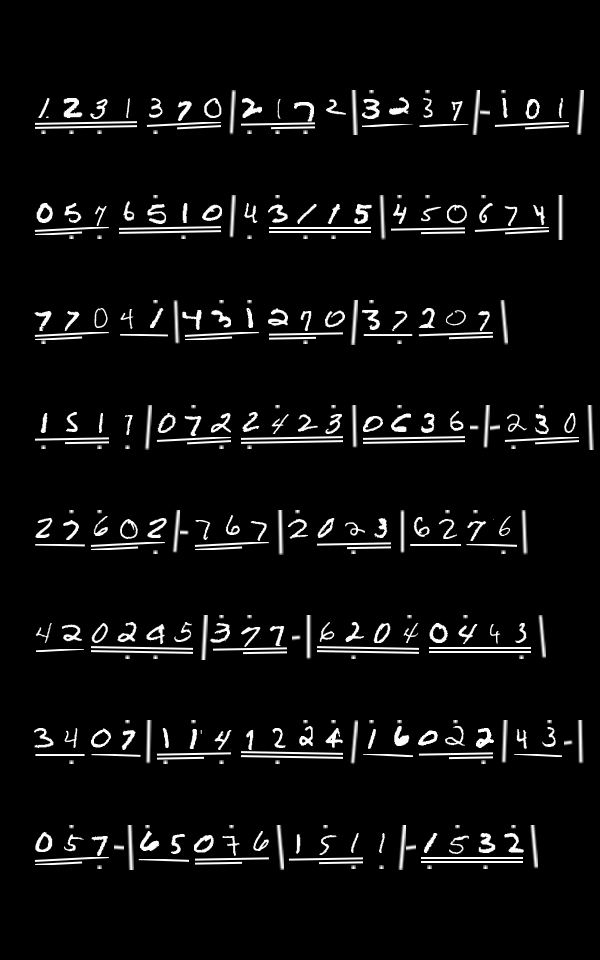 1231 370|2172|3237|-101
057 6510|43115|450674
77041|431270|37207
1517|0722423|0636-|-230
27602|-767|2023|6276
420245|377-|62040443
3407|1141224|16022|43-
057-|65076|1511|-1532